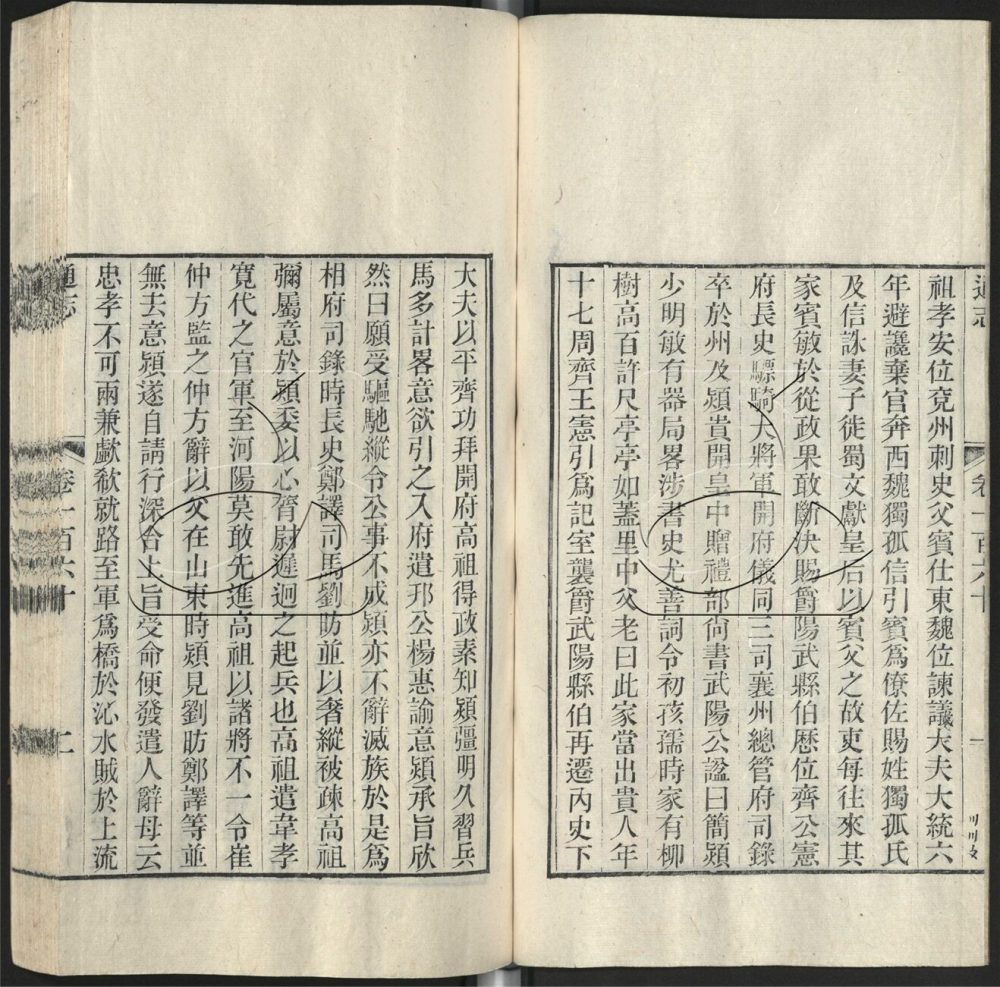 通志 卷一百六十 一
祖孝安位兗州刺史父賓仕東魏位諫議大夫大統六
年避讒棄官奔西魏獨孤信引賓為僚佐賜姓獨孤氏
及信誅妻子徙蜀文獻皇后以賓父之故吏每往來其
家賓敏於從政果敢斷決賜爵陽武縣伯歷位齊公憲
府長史驃騎大將軍開府儀同三司襄州總管府司錄
卒於州及熲貴開皇中贈禮部尚書武陽公諡曰簡熲
少明敏有器局畧涉書史尤善詞令初孩孺時家有柳
樹高百許尺亭亭如蓋里中父老曰此家當出貴人年
十七周齊王憲引爲記室襲爵武陽縣伯再遷內史下
大夫以平齊功拜開府高祖得政素知熲彊明久習兵
馬多計畧意欲引之入府遣邘公楊惠諭意熲承旨欣
然曰願受驅馳縱令公事不成熲亦不辭滅族於是爲
相府司錄時長史鄭譯司馬劉昉並以奢縱被疎高祖
彌屬意於熲委以心膂尉遲迥之起兵也高祖遣韋孝
寬代之官軍至河陽莫敢先進高祖以諸將不一令崔
仲方監之仲方辭以父在山東時熲見劉昉鄭譯等並
無去意熲遂自請行深合上旨受命便發遣人辭母云
忠孝不可兩兼歔欷就路至軍爲橋於沁水賊於上流
通志 卷一百六十 二